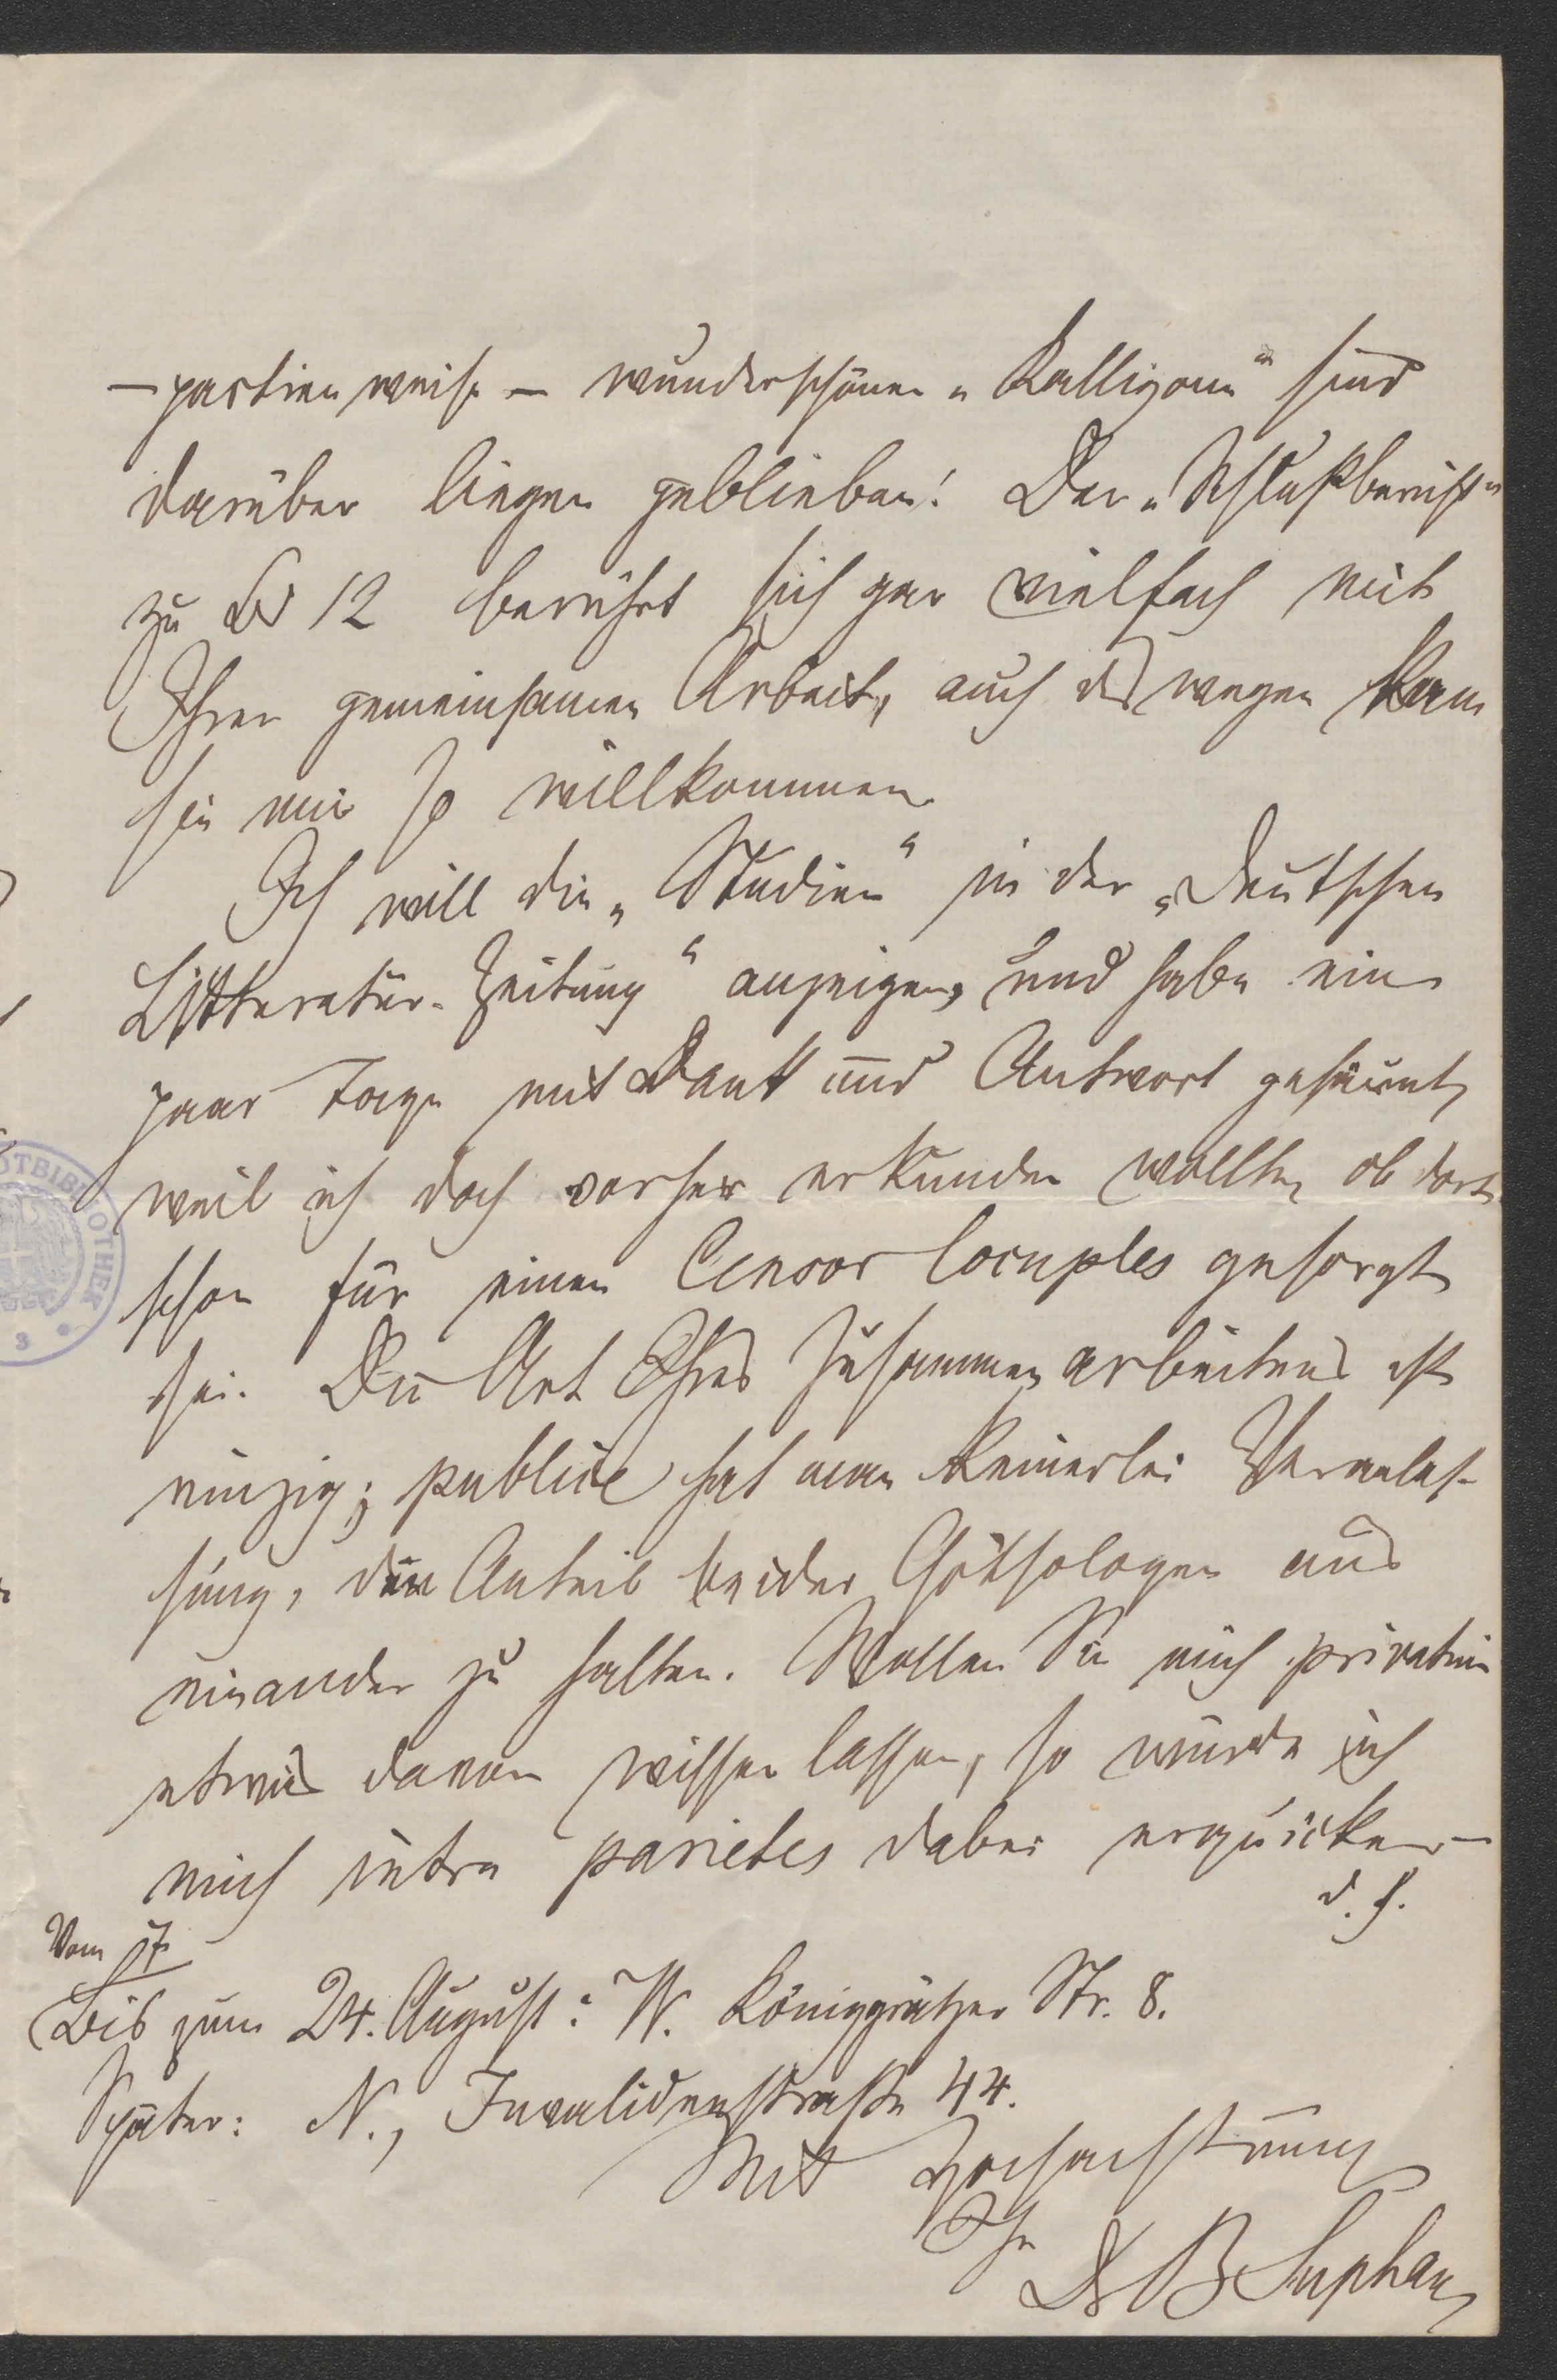 – partienweise – wunderschönen „Kalligone“ sind
darüber liegen geblieben! Der „Schlußbericht“
zu Bd 12 berührt sich gar vielfach mit
Ihrer gemeinsamen Arbeit, auch deswegen kam
sie mir so willkommen.
Ich will die „Studien“ in der „Deutschen
Litteratur-Zeitung“ anzeigen, und habe ein
paar Tage mit Dank und Antwort gesäumt,
weil ich doch vorher erkunden wollte, ob dort
schon für einen Censor locuples gesorgt
sei. Die Art Ihres Zusammenarbeitens ist
einzig; publice hat man keinerlei Veranlas-
sung, den Anteil beider Göthologen aus
einander zu halten. Wollen Sie mich privatim
etwas davon wissen lassen, so würde ich
mich intra parietes dabei erquicken –
d. h.
Vom 17
Bis zum 24. August: W. Königgrätzer Str. 8.
Später: N., Invalidenstraße 44.
Mit Hochachtung
Ihr
Dr B Suphan